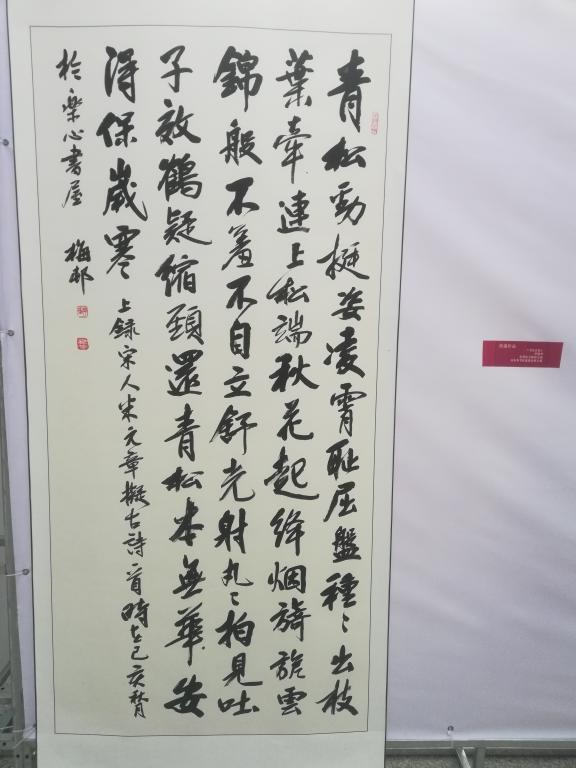 青松勁挺姿凌霄耻屈盤種〻出枝
葉牽連上松端秋花起絳烟旖旎雲
錦般不羞不自立舒光射丸〻柏見吐
子效鶴疑縮頸還青松本無華安
淂保嵗寒 上録宋人米元章擬古詩一首時在己亥
於楽心書屋 梅邨